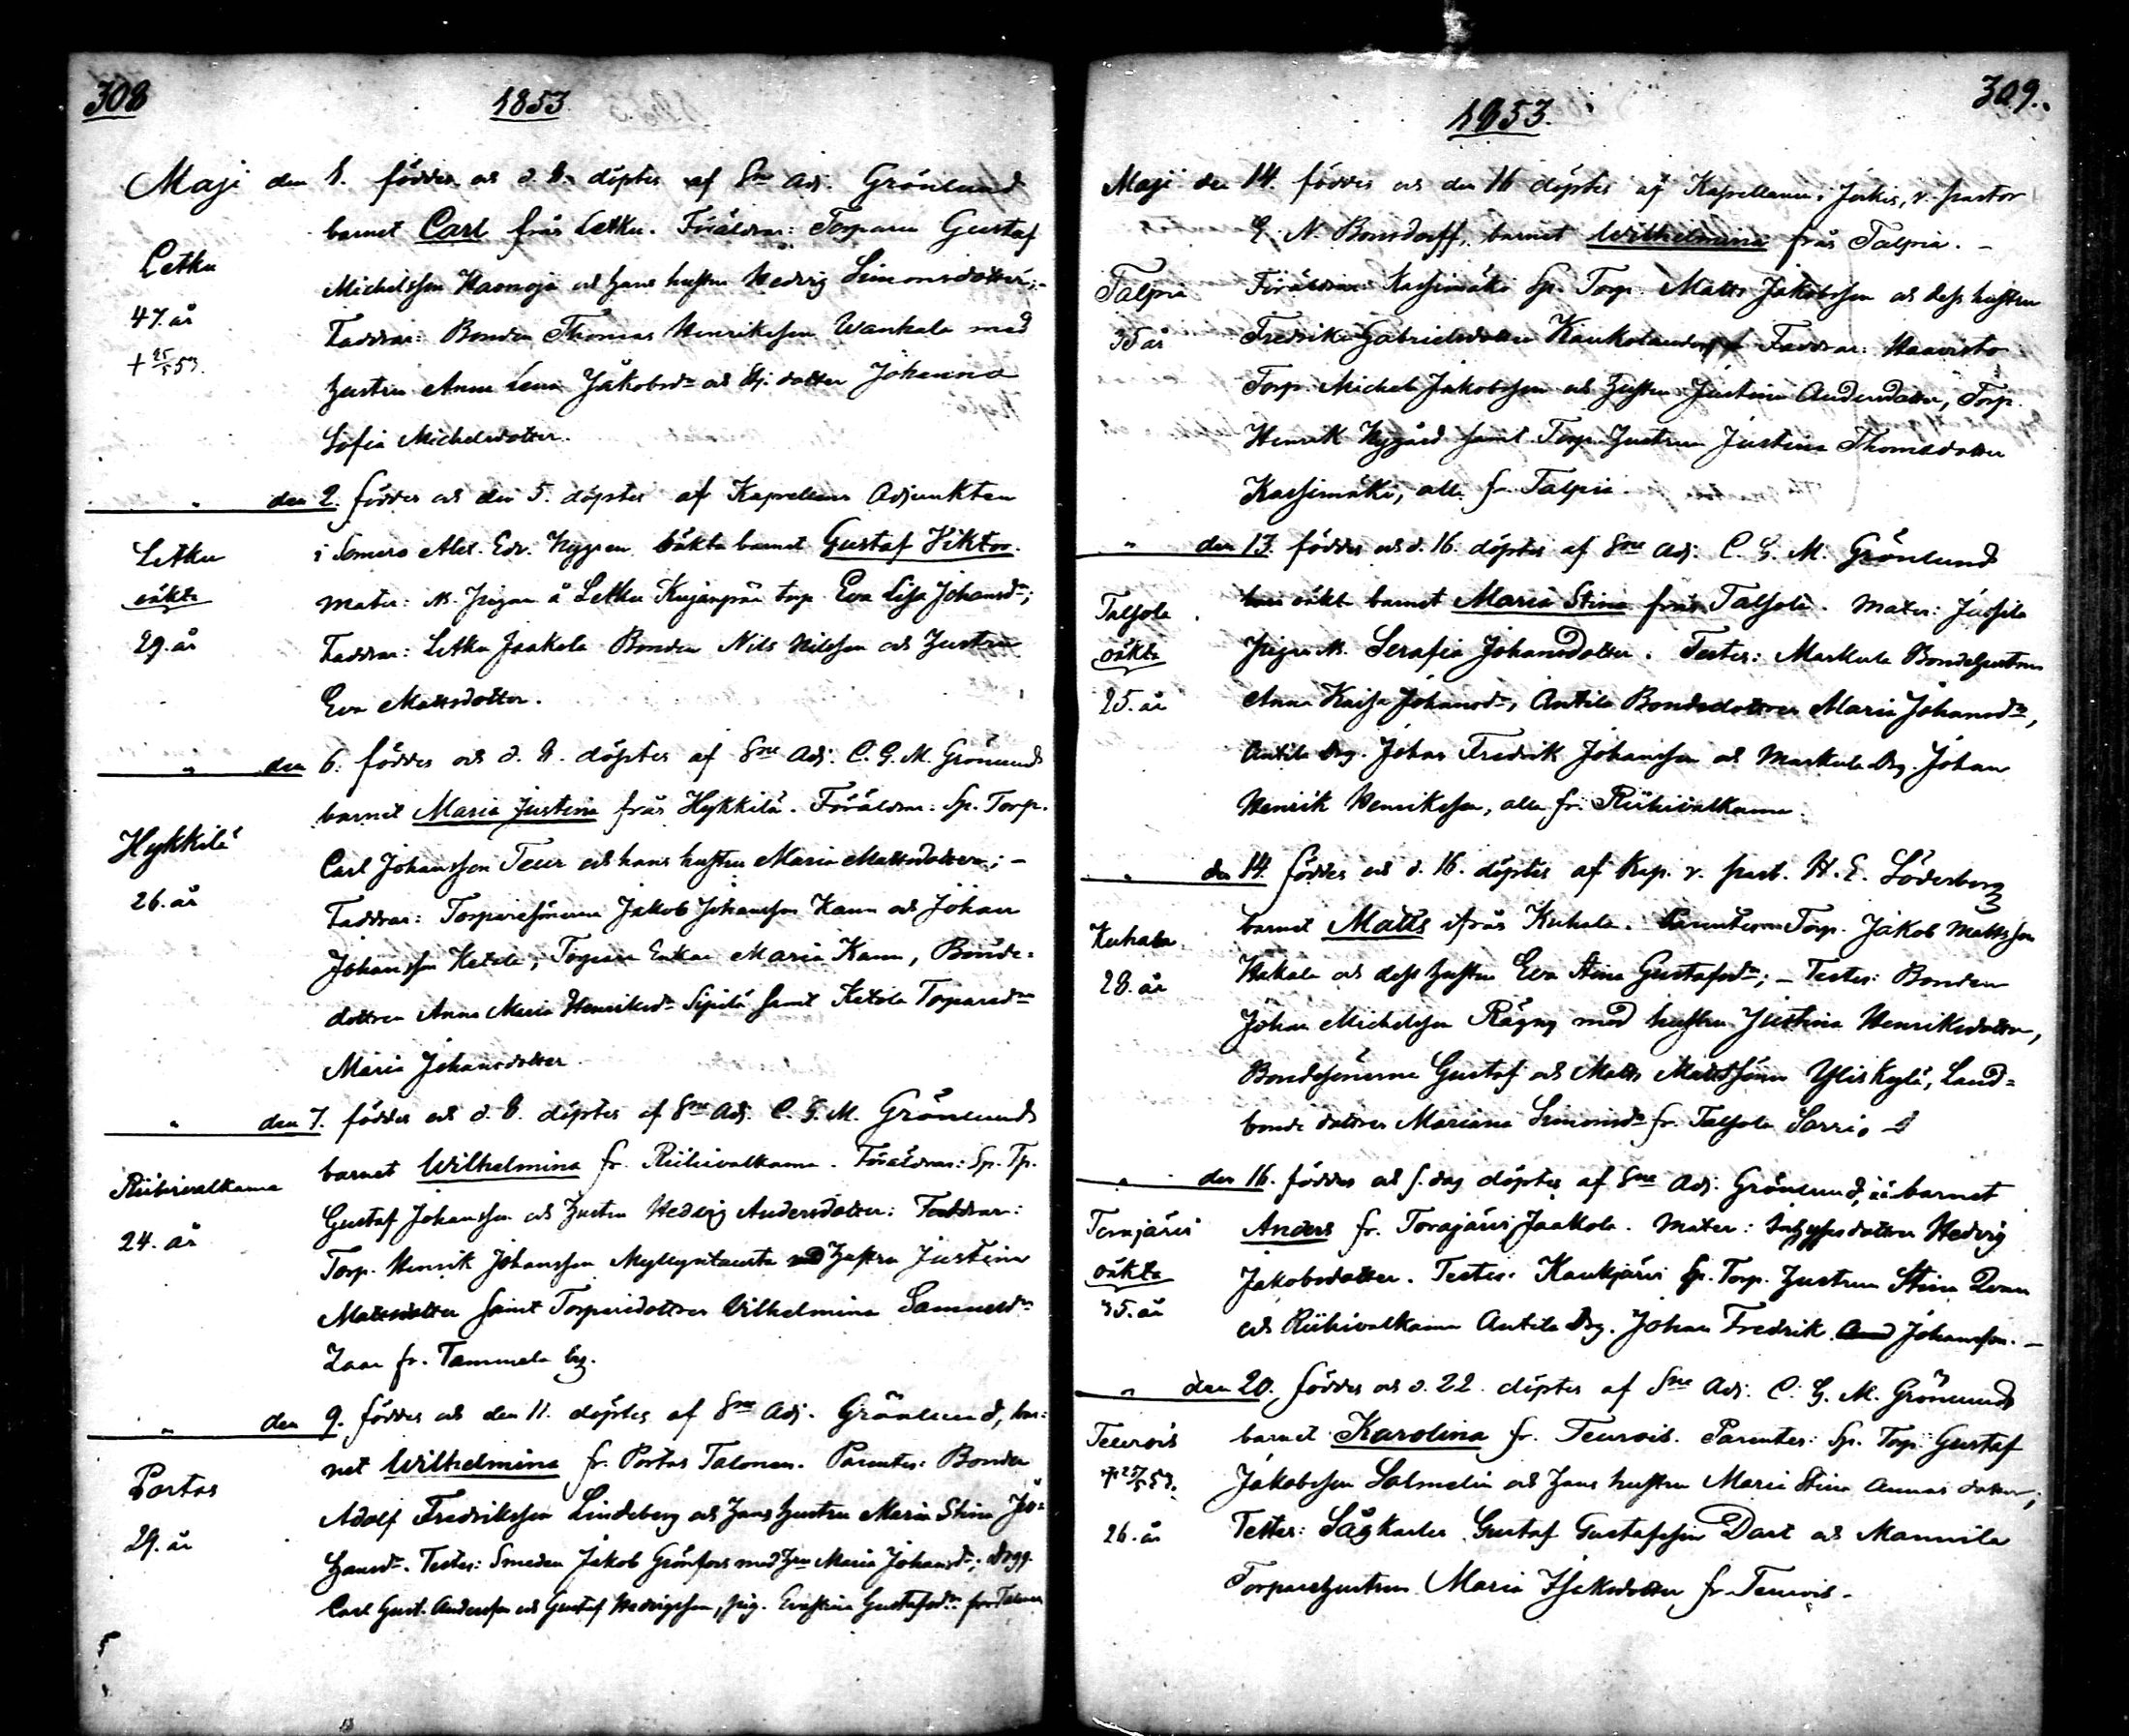 308
1853
Maji den 1. föddes och d. 8. döptes af Sne Adj. Grönlund
barnet Carl från Letku. Föräldrar: Torparen Gustaf
Letku
Michelsson Haonoja och hans hustru Hedvig Simonsdotter;-
47. år
Faddrar: Bonden Thomas Henriksson Wanhala med
+ 25/5 53.
hustru Anna Lena Jakobsdr och dotter Johanna
Sofia Michelsdotter.
" den 2. föddes och den 5. döptes af Kapellans Adjunkten
Letku
i Somero Alex. Edv. Nygren oäkta barnet Gustaf Viktor.
oäkta
Mater: N. Pigan å Letku Kujanpää torp Eva Lisa Johansdr;
29. år
Faddrar: Letku Jaakola Bonden Nils Nilsson och hustru
Eva Mattsdotter.
" den 6. föddes och d. 8. döptes af Sne Adj. C. G. M. Grönlund
barnet Maria Justina från Hykkilä. Föräldrar: Sp. Torp.
Hykkilä
Carl Johansson Teur och hans hustru Maria Mattsdotter; -
26. år
Faddrar: Torparesönerna Jakob Johansson Kann och Johan
Johansson Ketola, Torpare Enkan Maria Kann, Bonde-
dottren Anna Maria Henriksdr Sipilä samt Ketola Torparedr
Maria Johansdotter.
" den 7. föddes och d. 8. döptes af Sne Adj. C. G. M. Grönlund
barnet Wilhelmina fr. Riihivalkama. Föräldrar: Sp. Tp.
Riihivalkama
Gustaf Johansson och hustru Hedvig Andersdotter: Faddrar:
24. år
Torp. Henrik Johansson Myllyntausta med hustru Justina
Mattsdotter samt Torparedottren Vilhelmina Samuelsdr
Zaar fr. Tammela by.
" den 9. föddes och den 11. döptes af Sne Adj. Grönlund, bar-
net Wilhelmina fr. Portas Talonen. Parentes: Bonden
Portas
Adolf Fredriksson Lindeberg och hans hustru Maria Stina Jo-
29. år
hansdr. Testes: Smeden Jakob Grönfors med hru Maria Johansdr; drgg.
Carl Gust. Andersson och Gustaf Hedvigsson, pig. Evastina Gustafsdr
309.
1853.
Maji den 14. föddes och den 16 döptes af Kapellanen i Jokis, v. pastor
G. N. Bonsdorff, barnet Wilhelmina från Talpia. -
Talpia
Föräldrar: Kassimäki Sp. Torp. Matts Jakobsson och dess hustru
35 år
Fredrika Gabrielsdotter Faddrar: Haavisto
Torp. Michel Jakobsson och hustru Justina Andersdotter, Torp.
Henrik Nygård samt Torp. hustrun Justina Thomasdotter
Kassimäki, alla fr. Talpia.
" den 13. föddes och d. 16. döptes af Sne Adj. C. G. M. Grönlund
Talsola
oäkta barnet Maria Stina från Talsola. Mater: Jussila
oäkta
Pigan N. Serafia Johansdotter. Testes: Markula Bondehustrun
25. år
Anna Kaisa Johansdr, Antila Bondedottren Maria Johansdr,
Antila Drg. Johan Fredrik Johansson och Markula Drg. Johan
Henrik Henriksson, alla fr. Riihivalkama.
" den 14. föddes och d. 16. döptes af Kap. v. past. H. E. Söderberg
barnet Matts ifrån Kuhala. Parentes: Torp. Jakob Mattsson
Kuhala
Hakala och dess hustru Eva Stina Gustafsdr; - Testes: Bonden
28. år
Johan Michelsson Rägny med hustru Justina Henriksdotter,
Bondesönerna Gustaf och Matts Mattssöner Yliskylä, Land-
bonde dottren Mariana Simonsdr fr. Talsola Sarri.
" den 16. föddes och s. dag döptes af Sne Adj. Grönlund, oä. barnet
Torajärvi
Anders fr. Torajärvi Jaakola. Mater: Inhysesdottren Hedvig
oäkta
Jakobsdotter. Testes: Kaukjärvi Sp. Torp. hustrun Stina
35. år
och Riihivalkama Antila Drg. Johan Fredrik Johansson. -
" den 20. föddes och d. 22. döptes af Sne Adj. C. G. M. Grönlund
Teurois
barnet Karolina fr. Teurois. Parentes: Sp. Torp. Gustaf
53.
Jakobsson Salmelin och hans hustru Maria Stina Annas dotter;
26. år
Testes: Sågkarlen Gustaf Gustafsson Dart och Mannila
Torparehustrun Maria Isaksdotter fr. Teurois.